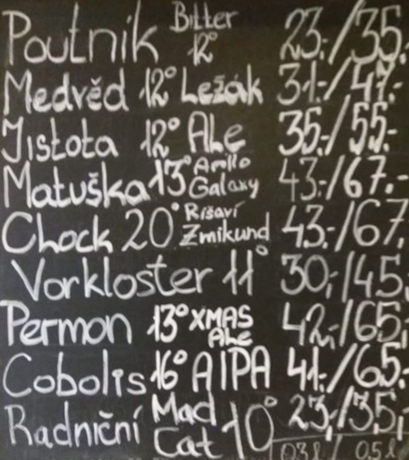 Poutník Bitter 12° 23,-/35,-
Medvěd 12° Ležák 31,-/47,-
Jistota 12° Ale 35,-/55,-
Matuška 13° Amillo Galaxy 43,-/67,-
Chock 20° Ríšaví Zmikund 43,-/67,
Vorkloster 11° 30,-/45,
Permon 13° XMAS Ale 42,-/65,
Cobolis 16° AIPA 41,-/65,-
Radniční Mad Cat 10° 23,-/35,-
0,3 l / 0,5 l